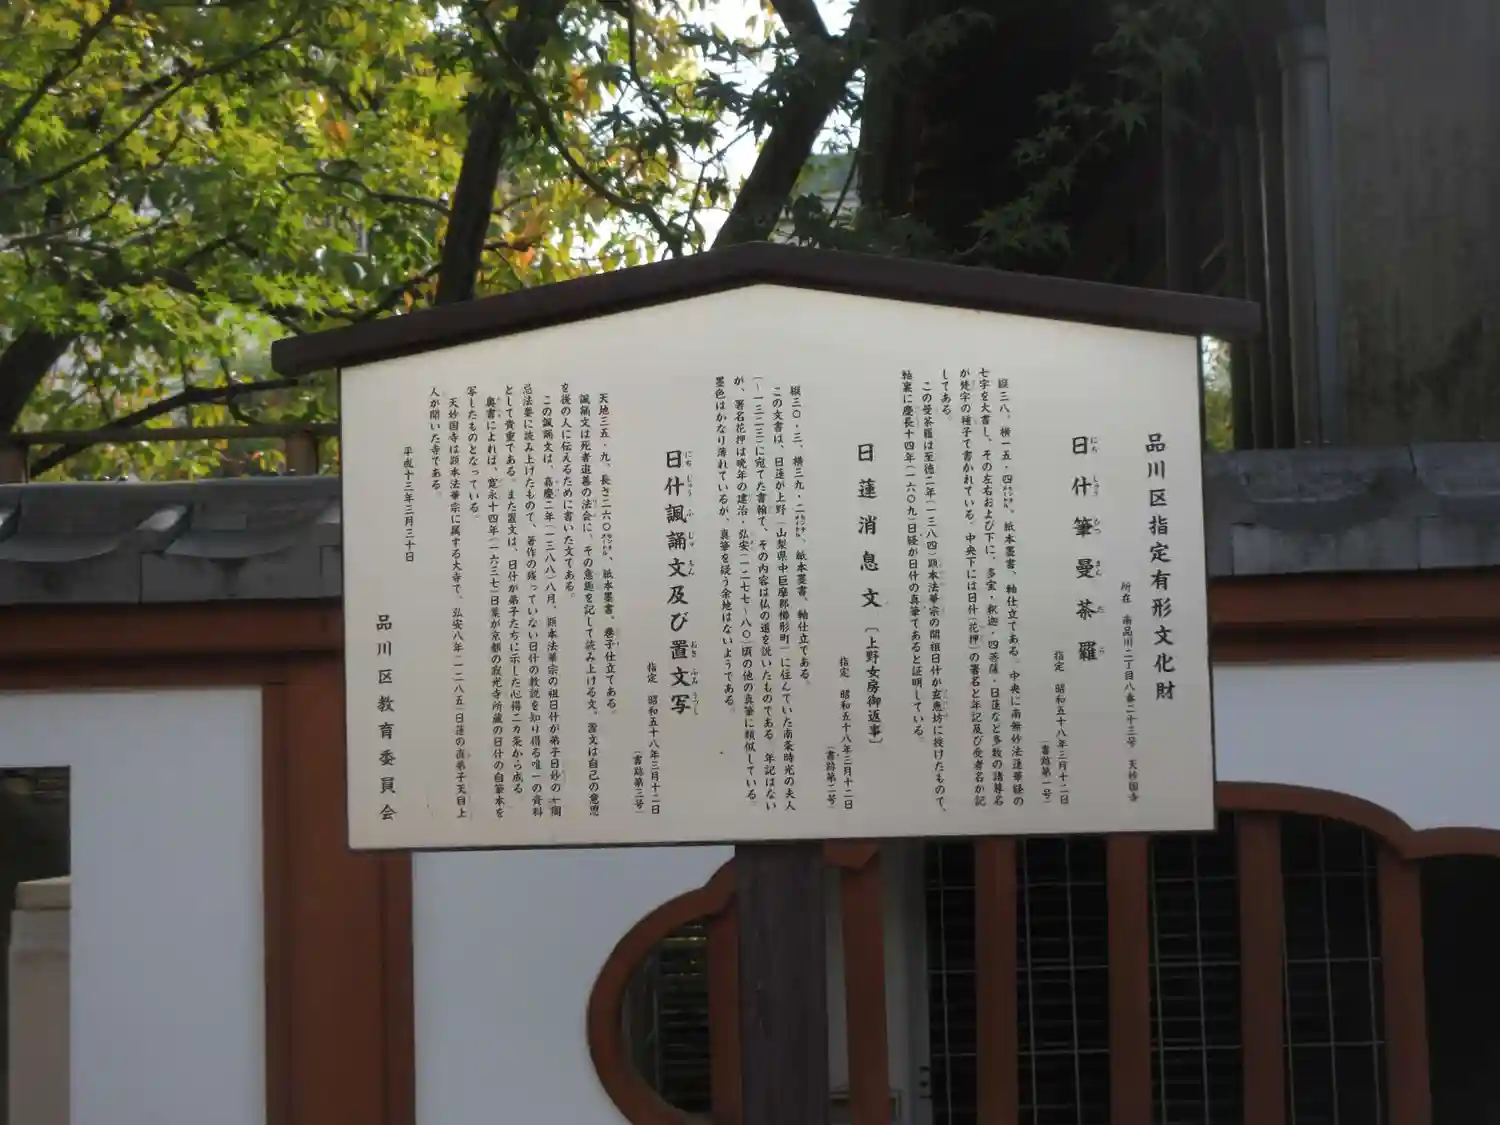 品川区指定有形文化財
所在 南品川二丁目八番二十三号 天妙国寺
日什筆曼荼羅
にちじゅうひつまんだら
指定 昭和五十八年三月十二日
(書跡第一号)
縦三八、横一五・四センチメートル、紙本墨書、軸仕立てである。中央に南無妙法蓮華経の
七字を大書し、その左右および下に、多宝・釈迦・四菩薩・日蓮など多数の諸尊名
が梵字の種子で書かれている。中央下には日什(花押)の署名と年記及び受者名が記
してある。
この曼荼羅は至徳二年(一三八四)顕本法華宗の開祖日什が玄恵坊に授けたもので、
軸裏に慶長十四年(一六〇九)日経が日什の真筆であると証明している。
日蓮消息文〔上野女房御返事〕
指定 昭和五十八年三月十二日
(書跡第二号)
縦三〇・三、横三九・二センチメートル、紙本墨書、軸仕立である。
この文書は、日蓮が上野(山梨県中巨摩郡櫛形町)に住んでいた南条時光の夫人
(~一三二三)に宛てた書翰で、その内容は仏の道を説いたものである。年記はない
が、署名花押は晩年の建治・弘安(一二七七~八〇)頃の他の真筆に類似している。
墨色はかなり薄れているが、真筆を疑う余地はないようである。
日什諷誦文及び置文写
にちじゅうふじゅもん おきぶんうつし
指定 昭和五十八年三月十二日
(書跡第三号)
天地三五・九、長さ二六〇センチメートル、紙本墨書、巻子仕立てある。
諷誦文は死者追善の法会に、その意趣を記して読み上げる文、置文は自己の意思
を後の人に伝えるために書いた文である。
この諷誦文は、嘉慶二年(一三八八)八月、顕本法華宗の祖日什が弟子日妙の七周
忌法要に読み上げたもので、著作の残っていない日什の教説を知り得る唯一の資料
として貴重である。また置文は、日什が弟子たちに示した心得二カ条から成る。
奥書によれば、寛永十四年(一六三七)日葉が京都の寂光寺所蔵の日什の自筆本を
写したものとなっている。
天妙国寺は顕本法華宗に属する大寺で、弘安八年(一二八五)日蓮の直弟子天目上
人が開いた寺である。
平成十三年三月三十日
品川区教育委員会